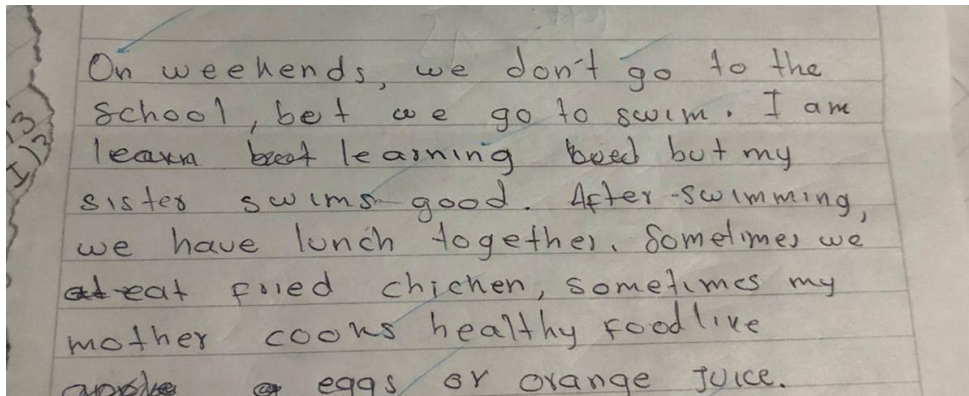 On weekends, we don't go to the
school, bet we go to swim. I am
learn learning but my
sister swims good. After swimming,
we have lunch together. Sometimes we
eat fried chicken, sometimes my
mother cooks healthy food like
eggs or orange juice.